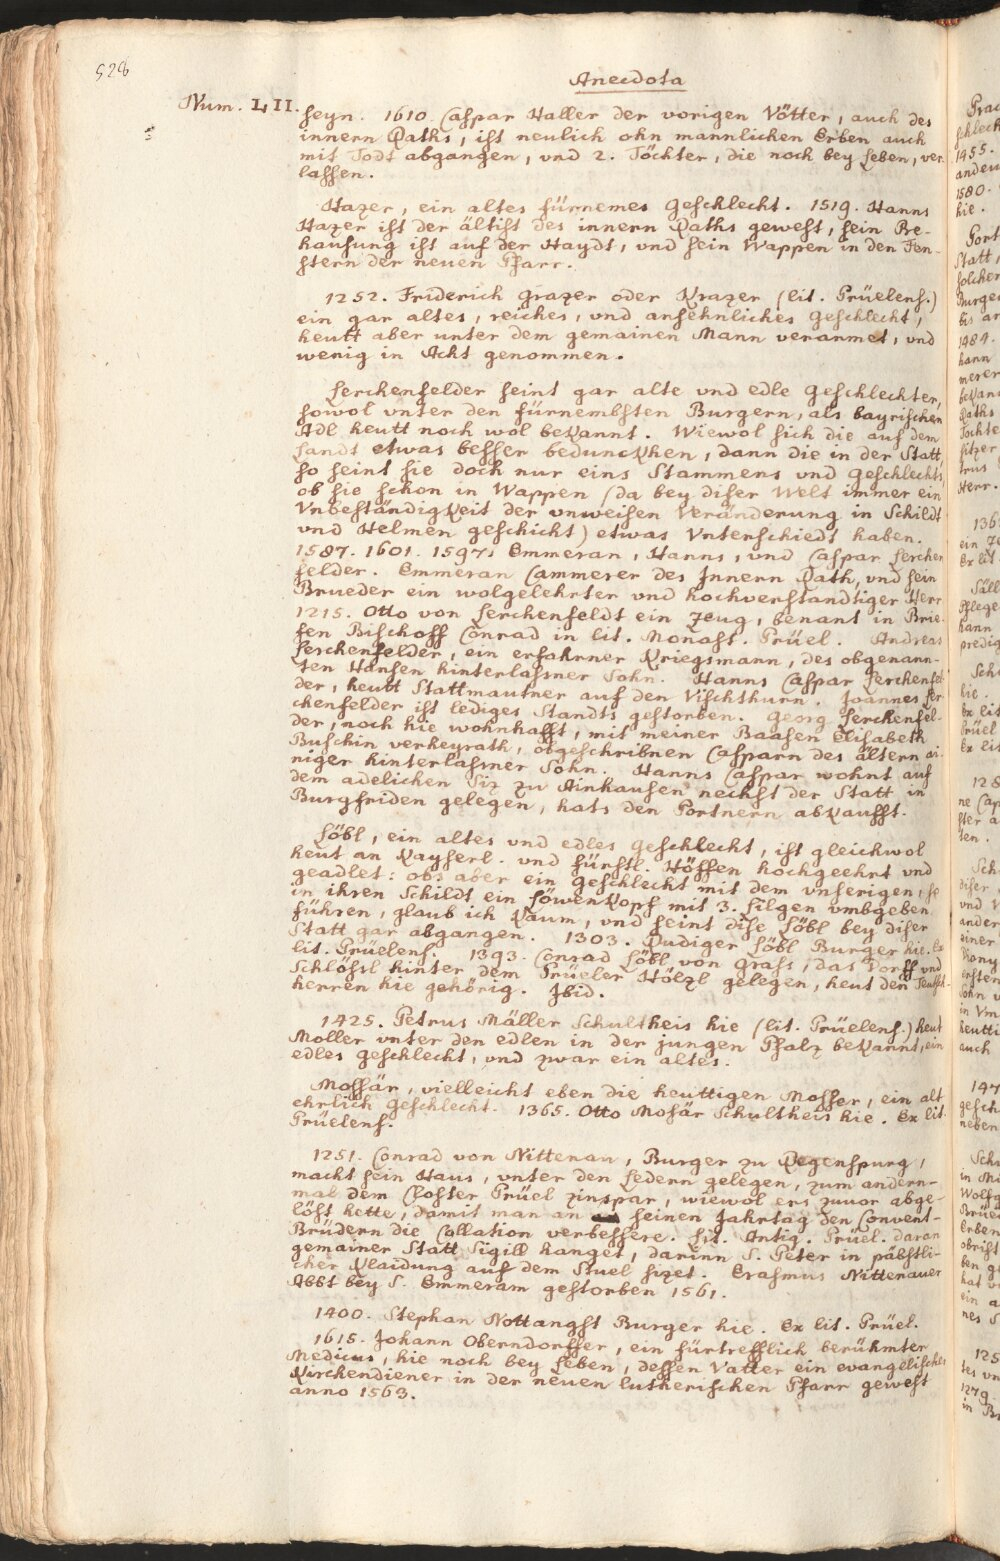 528
Anecdota
Num. LII.
seyn. 1610. Caspar Haller der vorigen Vötter, auch des
innern Raths, ist neulich ohn mannlichen Erben auch
mit Todt abgangen, vnd 2. Töchter, die noch bey Leben, ver-
lassen.
Hazer, ein altes fürnemes Geschlecht. 1519. Hanns
Hazer ist der ältist des innern Raths gewest, sein Be-
hausung ist auf der Haydt, vnd sein Wappen in den Fen-
stern der neuen Pfarr.
1252. Friderich Grazer oder Krazer (lit. Prüelens.)
ein gar altes, reiches, vnd ansehnliches Geschlecht,
heutt aber unter dem gemainen Mann verarmet, vnd
wenig in Acht genommen.
Lerchenfelder seint gar alte vnd edle Geschlechter,
sowol vnter den fürnembsten Burgern, als bayrischen
Adl heutt noch wol bekannt. Wiewol sich die auf dem
Landt etwas besser bedunckhen, dann die in der Statt,
so seint sie doch nur eins Stammens vnd Geschlechts,
ob sie schon in Wappen (da bey diser Welt immer ein
Vnbeständigkeit der vnweisen Veränderung in Schildt
vnd Helmen geschicht) etwas Vnterschiedt haben.
1587. 1601. 1597. Emmeran, Hanns, vnd Caspar Lerchen
felder. Emmeran Cammerer des Innern Rath, vnd sein
Brueder ein wolgelehrter vnd hochverstandtiger Herr
1215. Otto von Lerchenfeldt ein Zeug, benant in Brie-
fen Bischoff Conrad in lit. Monast. Prüel. Andreas
Lerchenfelder, ein erfahrner Kriegsmann, des obgenann-
ten Hansen hinterlassner Sohn. Hanns Caspar Lerchenfel-
der, heutt Stattmautner auf den Vischthurn. Joannes Ler
chenfelder ist lediges Standts gestorben. Georg Lerchenfel-
der, noch hie wohnhafft, mit meiner Baasen Elisabeth
Buschin verheyrath, obgeschribnen Casparn des ältern ai-
niger hinterlassner Sohn. Hanns Caspar wohnt auf
dem adelichen Siz zu Ainhausen nechst der Statt in
Burgfriden gelegen, hats den Portnern abkaufft.
Löbl, ein altes vnd edles Geschlecht, ist gleichwol
heut an Kayserl. vnd fürstl. Höffen hochgeehrt vnd
geadlet: obs aber ein Geschlecht mit dem vnserigen, so
in ihren Schildt ein Löwenkopf mit 3. Lilgen vmbgeben
führen, glaub ich kaum, vnd seint dise Löbl bey diser
Statt gar abgangen. 1303. Rudiger Löbl Burger hie. Ex
lit. Prüelens. 1393. Conrad Löbl von Grass, das Dorff vnd
Schlössl hinter dem Prüeler Hölzl gelegen, heut den Teutsch-
herren hie gehörig. Ibid.
1425. Petrus Mäller Schultheis hie (lit. Prüelens.) heut
Moller vnter den edlen in der jungen Pfalz bekannt, ein
edles Geschlecht, vnd zwar ein altes.
Mossär, vielleicht eben die heuttigen Mosser, ein alt
ehrlich Geschlecht. 1365. Otto Mosär Schultheis hie. Ex lit.
Prüelens.
1251. Conrad von Nittenau, Burger zu Regenspurg,
macht sein Haus, vnter den Ledern gelegen, zum andern-
mal dem Closter Prüel zinspar, wiewol ers zuuor abge-
löst hette, damit man an seinen Jahrtag den Convent-
Brüdern die Collation verbessere. Lit. Antig. Prüel. daran
gemainer Statt Sigill hanget, darinn S. Peter in päbstli-
cher Klaidung auf dem Stuel sizet. Erasmus Nittenauer
Abbt bey S. Emmeram gestorben 1561.
1400. Stephan Nottangst Burger hie. Ex lit. Prüel.
1615. Johann Oberndorffer, ein fürtrefflich berühmter
Medicus, hie noch bey Leben, dessen Vatter ein evangelischer
Kirchendiener in der neuen lutherischen Pfarr gewest
anno 1563.